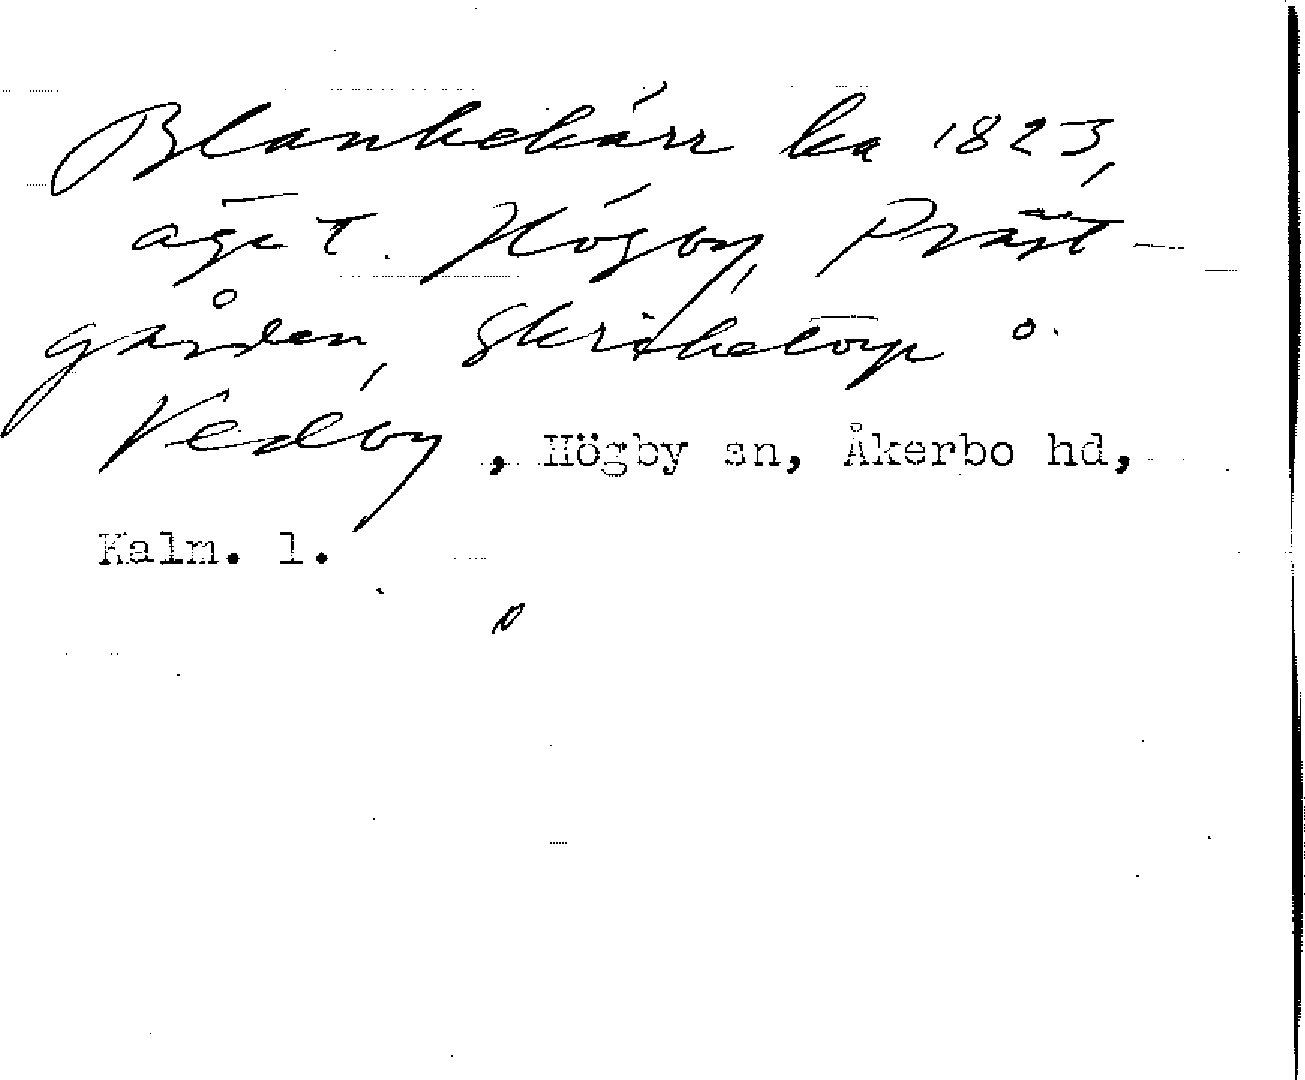 Blankekärr ka 1823,
äge t. Högby, Präst-
gården, Skriketorp o.
Vedby, Högby sn, Åkerbo hd,
Kalm. l.